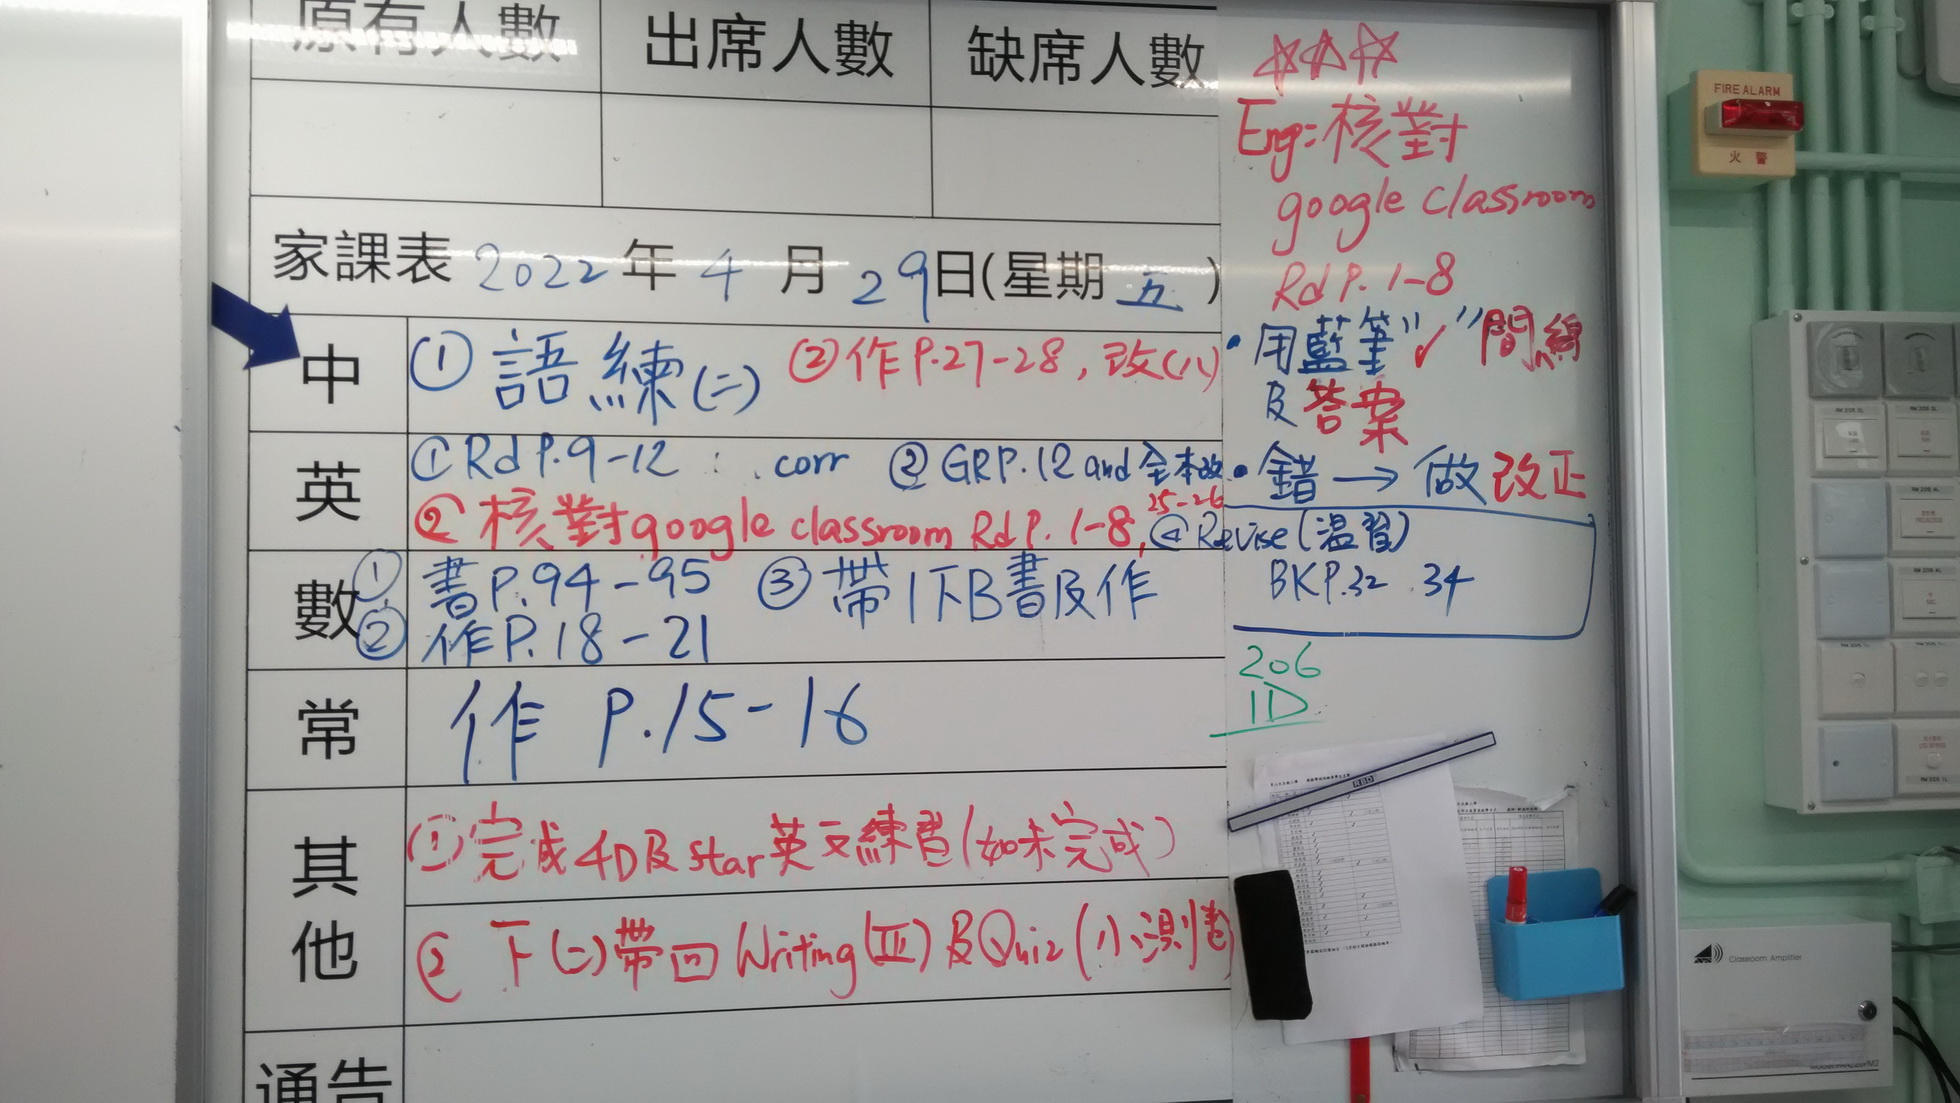 原有人數 出席人數 缺席人數
家課表 2022 年 4 月 29日(星期 五 )
中 ① 語練(二) ②作 P.27-28, 改(八)
英 ①Rd P.9-12 : . corr ② GRP.12 and 全本改
25-26
② 核對google classroom Rd P. 1-8, ④ Revise(溫習)
BKP.32 34
數 ① 書P.94-95 ③ 帶1下B書及作
② 作P.18-21
常 作 P.15-16
其他 ①完成4D及star英文練習(如未完成)
② 下(二)帶回 Writing(三)及Quiz(小測卷
通告
Eng:核對
google classroom
Rd P. 1-8
• 用藍筆"✓"間線
及答案
• 錯 → 做改正
206
1D
FIRE ALARM
火警
RBD
Classroom Amplifier